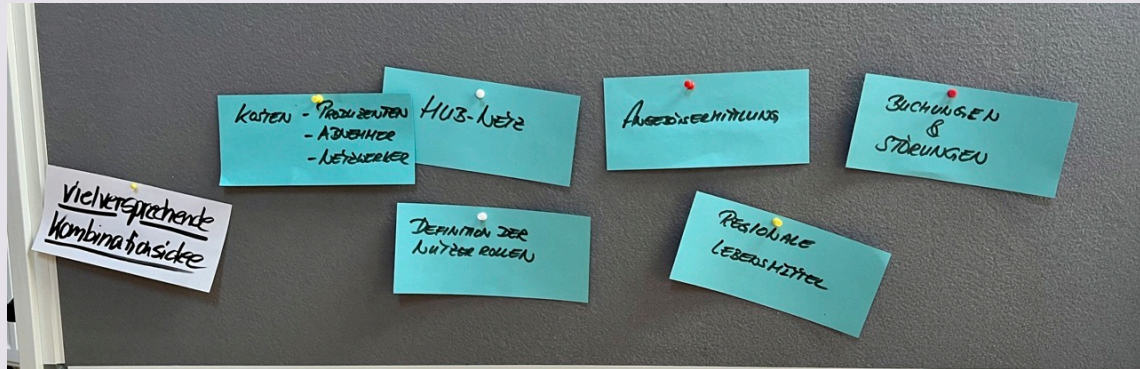 vielversprechende
Kombinationsidee
KOSTEN - PRODUZENTEN
- ABNEHMER
- NETZWERKER
HUB-NETZ
ANGEBOTSERMITTLUNG
BUCHUNGEN
&
STÖRUNGEN
DEFINITION DER
NUTZER ROLLEN
REGIONALE
LEBENSMITTEL